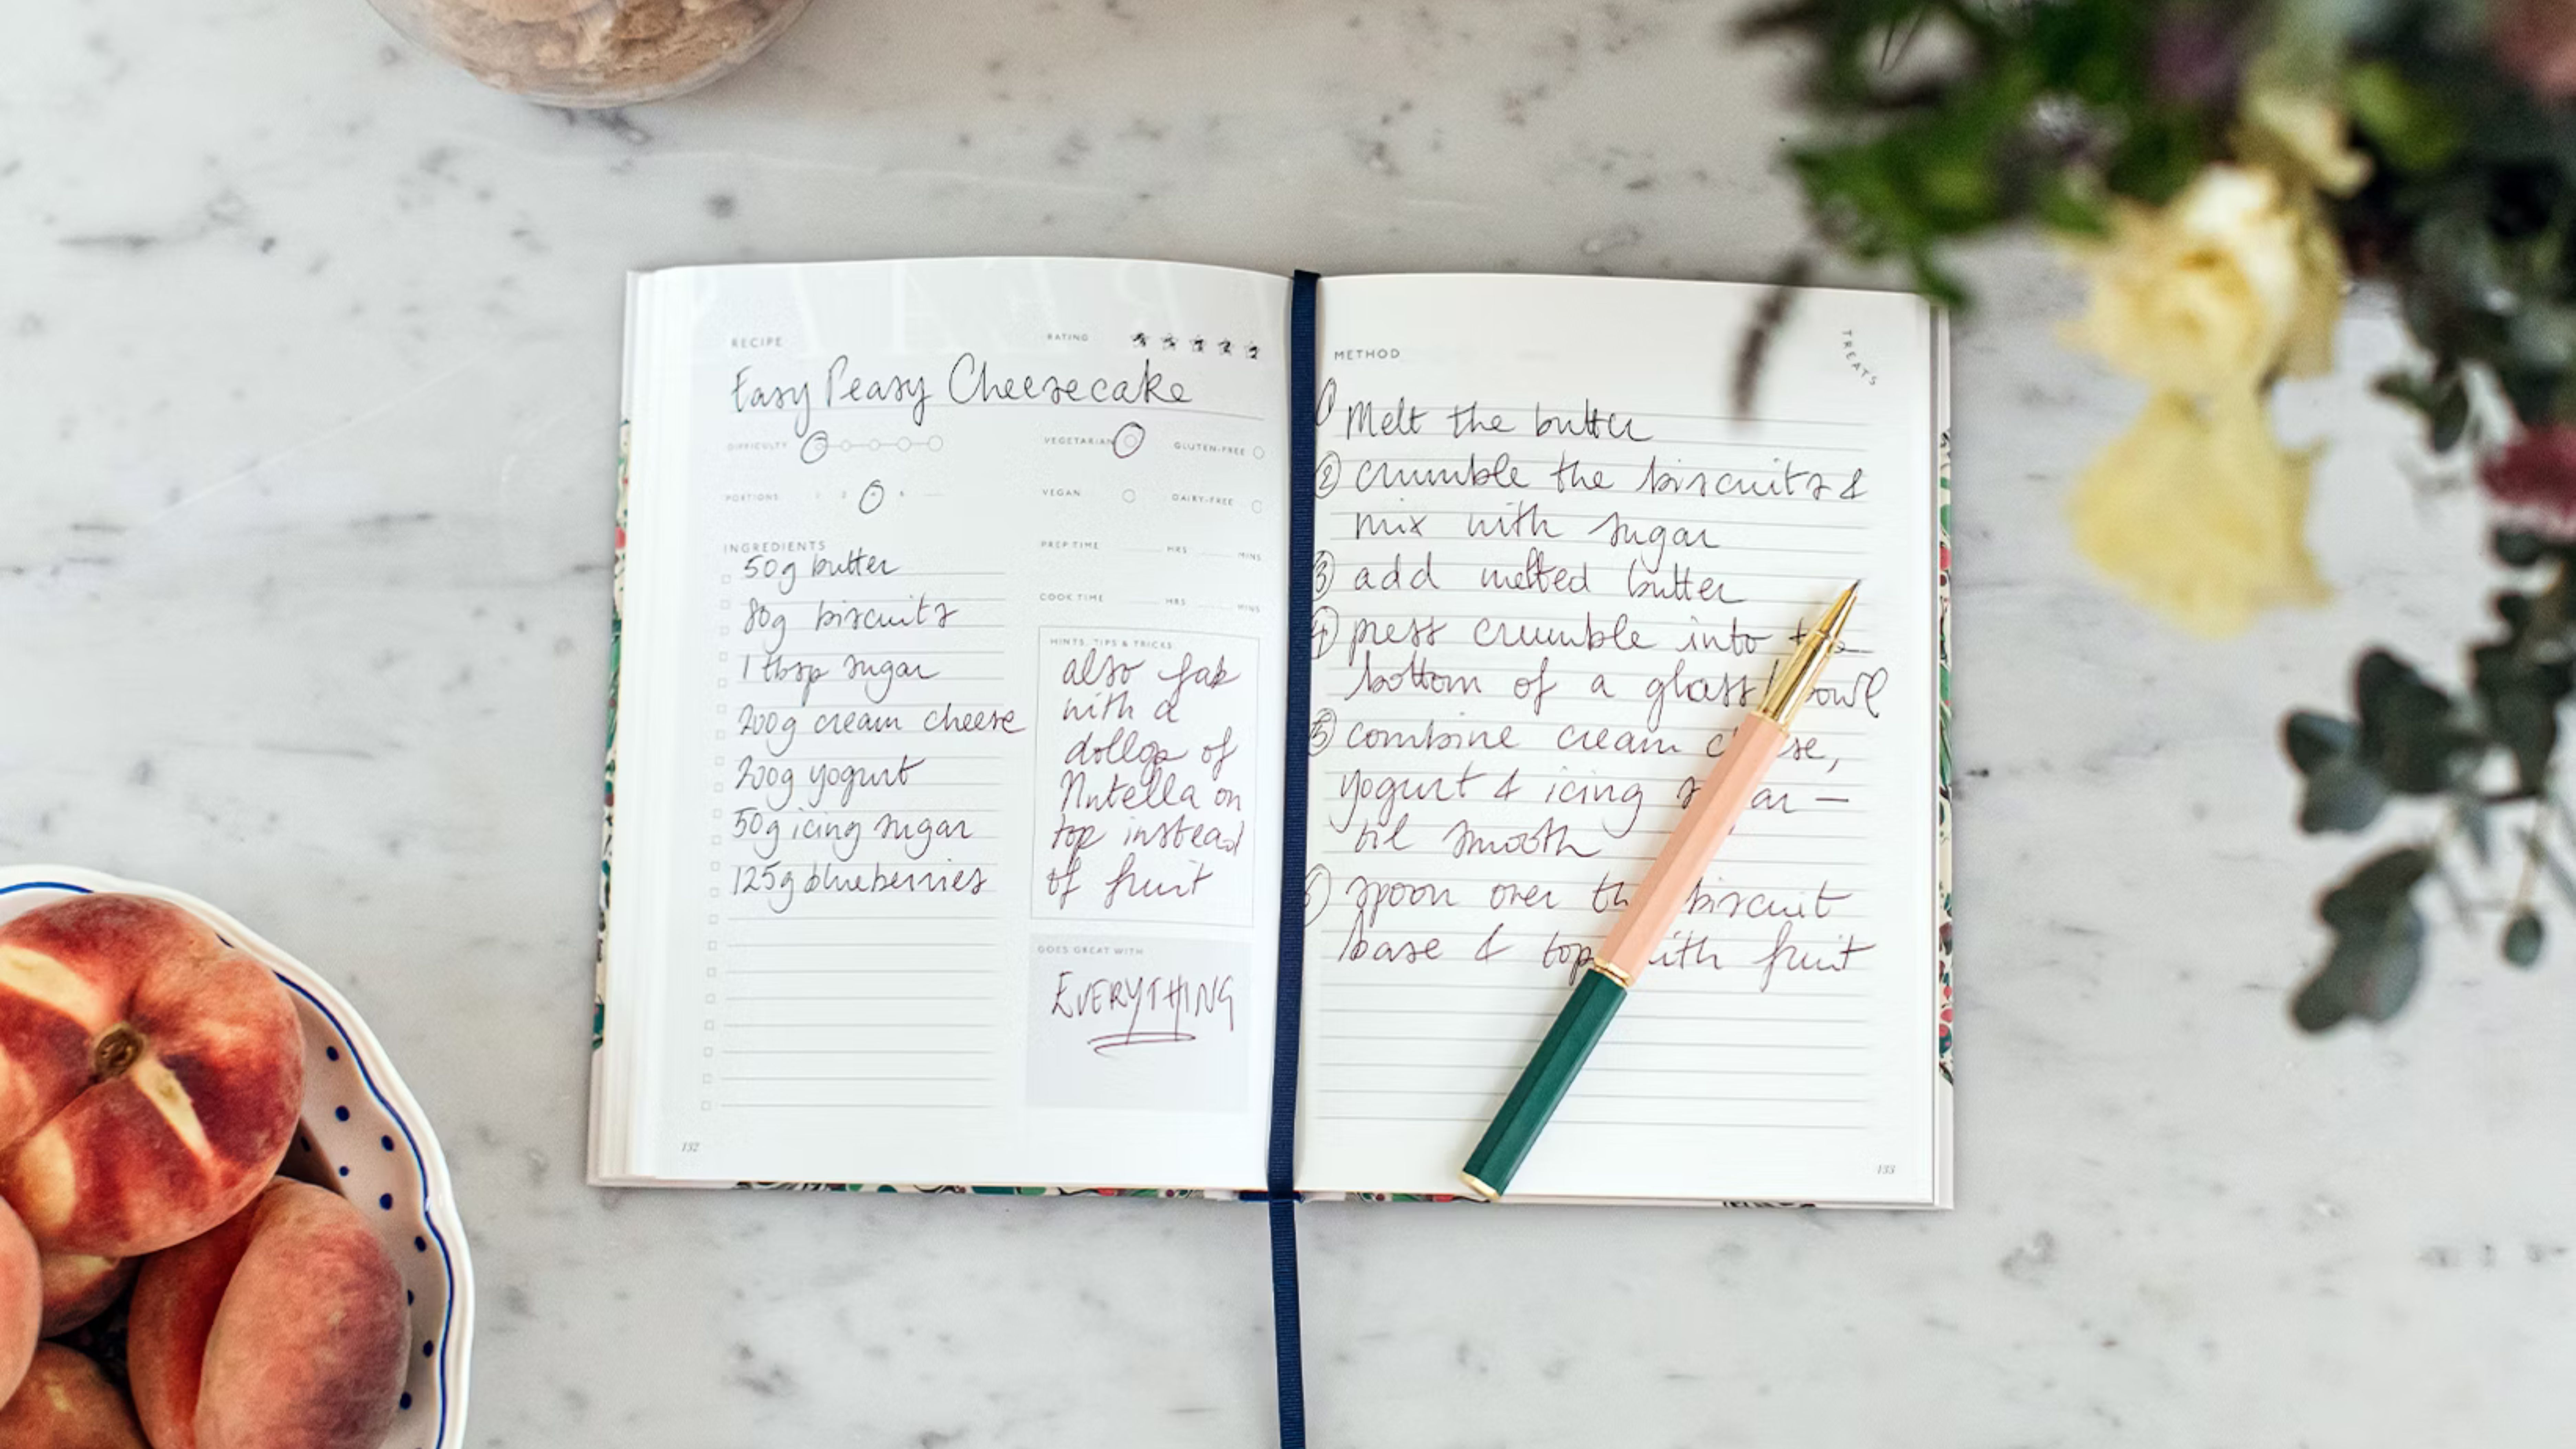 RECIPE
RATING
Easy Peasy Cheesecake
DIFFICULTY
VEGETARIAN
GLUTEN-FREE
PORTIONS
VEGAN
DAIRY-FREE
INGREDIENTS
50g butter
80g biscuits
1 tbsp sugar
200g cream cheese
200g yogurt
50g icing sugar
125g blueberries
PREP TIME HRS MINS
COOK TIME HRS MINS
HINTS, TIPS & TRICKS
also fab
with a
dollop of
Nutella on
top instead
of fruit
GOES GREAT WITH
EVERYTHING
132
METHOD
TREATS
1 Melt the butter
2 crumble the biscuits &
mix with sugar
3 add melted butter
4 press crumble into
bottom of a glass bowl
5 combine cream
yogurt & icing
til smooth
6 spoon over biscuit
base & top with fruit
133